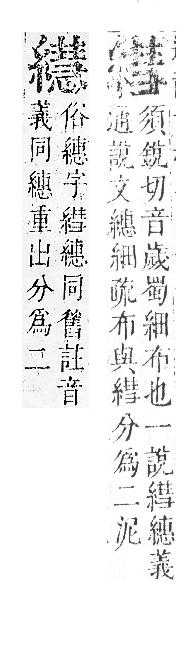 𦄑須銳切音歲蜀細布也一說𦄑繐義
通說文繐細疏布與𦄑分為二泥
俗繐字𦄑繐同舊註音
義同繐重出分為二